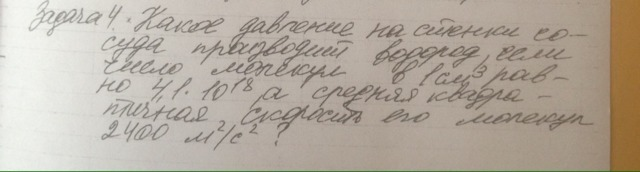 Задача 4. Какое давление на стенки со-
суда производит водород, если
число молекул в 1 см³ рав-
но 4,1·10¹⁸, а средняя квадра-
тичная скорость его молекул
2400 м²/с²?